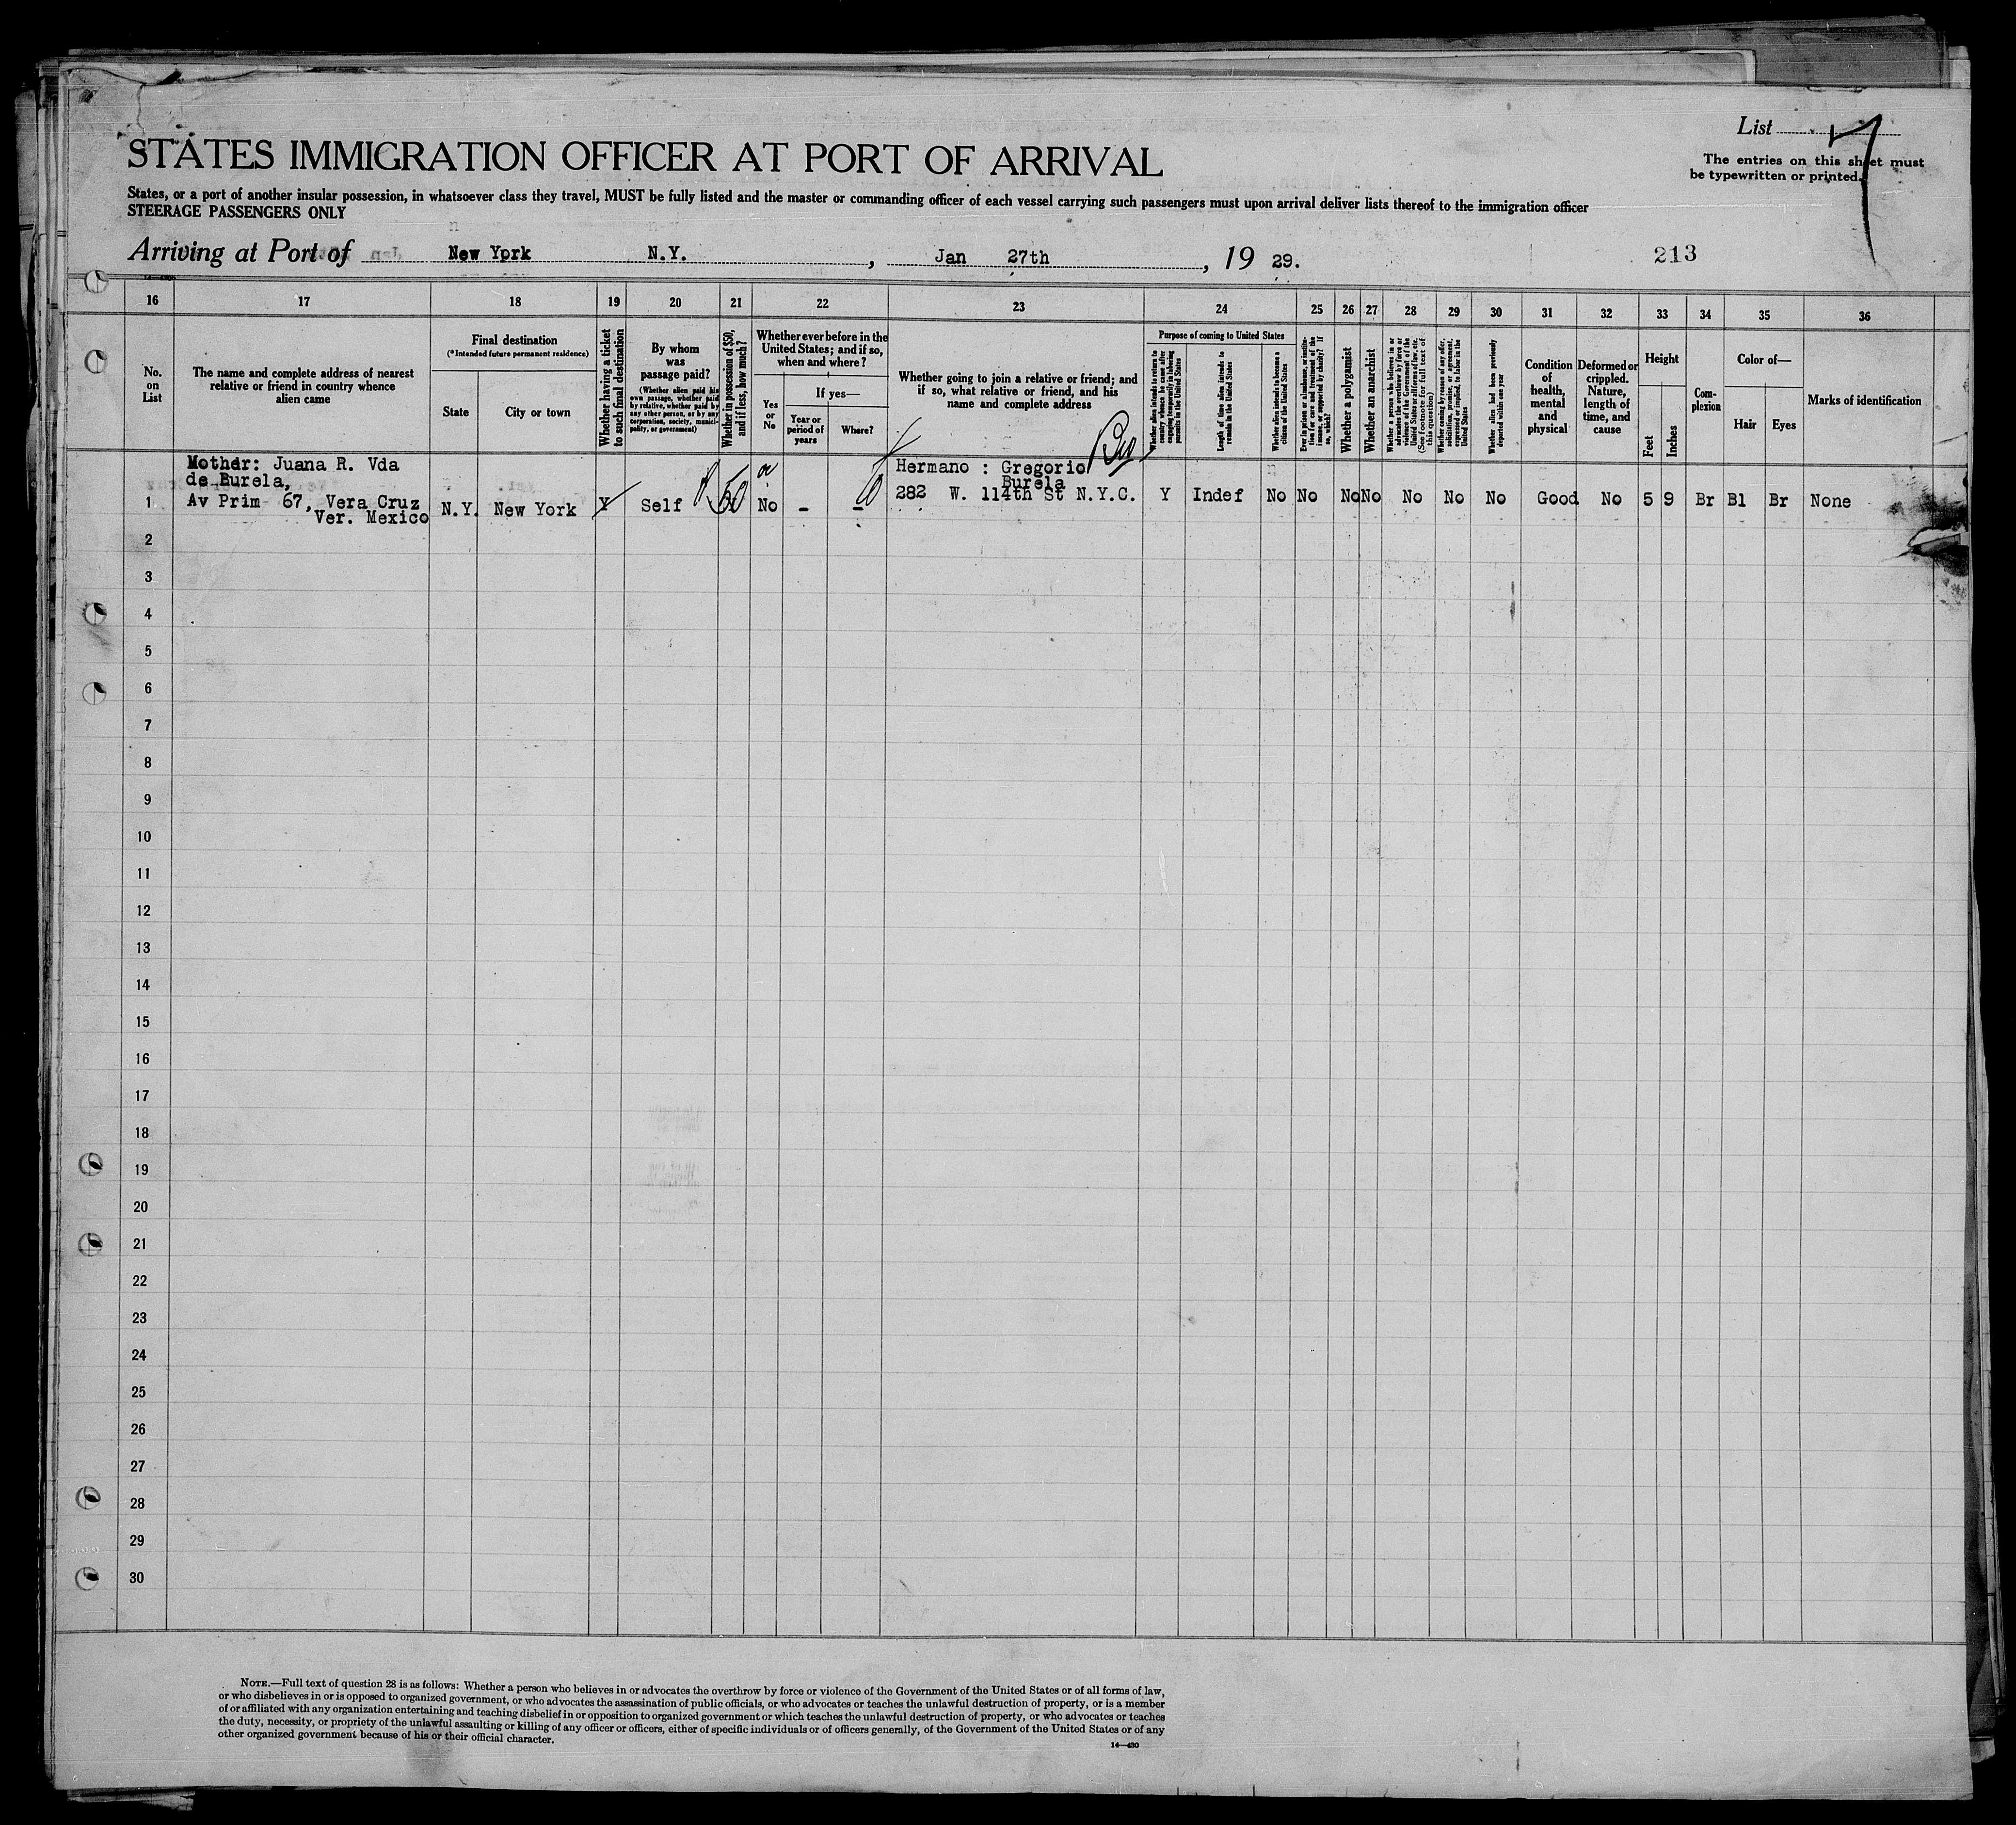 List 7
The entries on this sheet must
be typewritten or printed.
STATES IMMIGRATION OFFICER AT PORT OF ARRIVAL
States, or a port of another insular possession, in whatsoever class they travel, MUST be fully listed and the master or commanding officer of each vessel carrying such passengers must upon arrival deliver lists thereof to the immigration officer
STEERAGE PASSENGERS ONLY
Arriving at Port of New York N.Y. , Jan 27th , 19 29.
213
16 17 18 19 20 21 22 23 24 25 26 27 28 29 30 31 32 33 34 35 36
No. on List
The name and complete address of nearest
relative or friend in country whence
alien came
Final destination
(*Intended future permanent residence)
State
City or town
Whether having a ticket
to such final destination
By whom
was
passage paid?
(Whether alien paid his
own passage, whether paid
by relative, whether paid by
any other person, or by any
corporation, society, munici-
pality, or government)
Whether in possession of $50,
and if less, how much?
Whether ever before in the
United States; and if so,
when and where?
Yes
or
No
If yes—
Year or
period of
years
Where?
Whether going to join a relative or friend; and
if so, what relative or friend, and his
name and complete address
Purpose of coming to United States
Whether alien intends to return to
country whence he came after
engaging temporarily in laboring
pursuits in the United States
Length of time alien intends to
remain in the United States
Whether alien intends to become a
citizen of the United States
Ever in prison or almshouse, or institu-
tion for care and treatment of the
insane, or supported by charity? If
so, which?
Whether a polygamist
Whether an anarchist
Whether a person who believes in or
advocates the overthrow by force or
violence of the Government of the
United States or all forms of law, etc.
(See footnote for full text of
this question)
Whether coming by reason of any offer,
solicitation, promise, or agreement,
expressed or implied, to labor in the
United States
Whether alien had been previously
deported within one year
Condition
of
health,
mental
and
physical
Deformed or
crippled.
Nature,
length of
time, and
cause
Height
Feet
Inches
Com-
plexion
Color of—
Hair
Eyes
Marks of identification
Mother: Juana R. Vda
de Burela,
1 Av Prim 67, Vera Cruz
Ver. Mexico
N.Y. New York Y Self 50 No - -
Hermano : Gregorio
Burela
282 W. 114th St N.Y.C. Y Indef No No No No No No No Good No 5 9 Br Bl Br None
2
3
4
5
6
7
8
9
10
11
12
13
14
15
16
17
18
19
20
21
22
23
24
25
26
27
28
29
30
NOTE.—Full text of question 28 is as follows: Whether a person who believes in or advocates the overthrow by force or violence of the Government of the United States or of all forms of law,
or who disbelieves in or is opposed to organized government, or who advocates the assassination of public officials, or who advocates or teaches the unlawful destruction of property, or is a member
of or affiliated with any organization entertaining and teaching disbelief in or opposition to organized government or which teaches the unlawful destruction of property, or who advocates or teaches
the duty, necessity, or propriety of the unlawful assaulting or killing of any officer or officers, either of specific individuals or of officers generally, of the Government of the United States or of any
other organized government because of his or their official character.
14—430